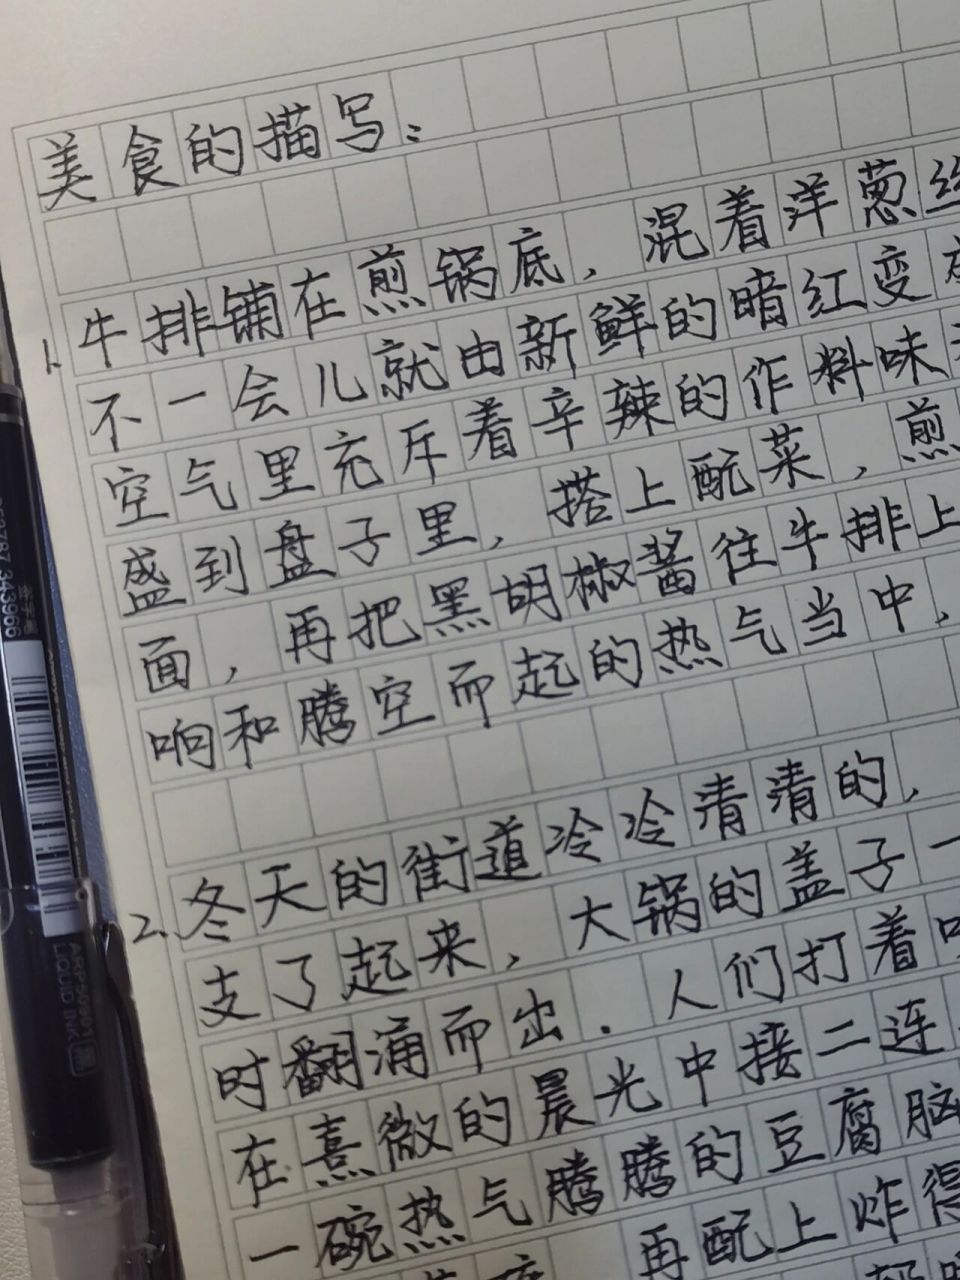 美食的描写：
1. 牛排铺在煎锅底，混着洋葱丝
不一会儿就由新鲜的暗红变
空气里充斥着辛辣的作料味
盛到盘子里，搭上配菜，煎
面，再把黑胡椒酱往牛排上
响和腾空而起的热气当中，
2. 冬天的街道冷冷清清的，
支了起来，大锅的盖子一
时翻涌而出．人们打着
在熹微的晨光中接二连
一碗热气腾腾的豆腐脑
再配上炸得
343966
LIQUID INK